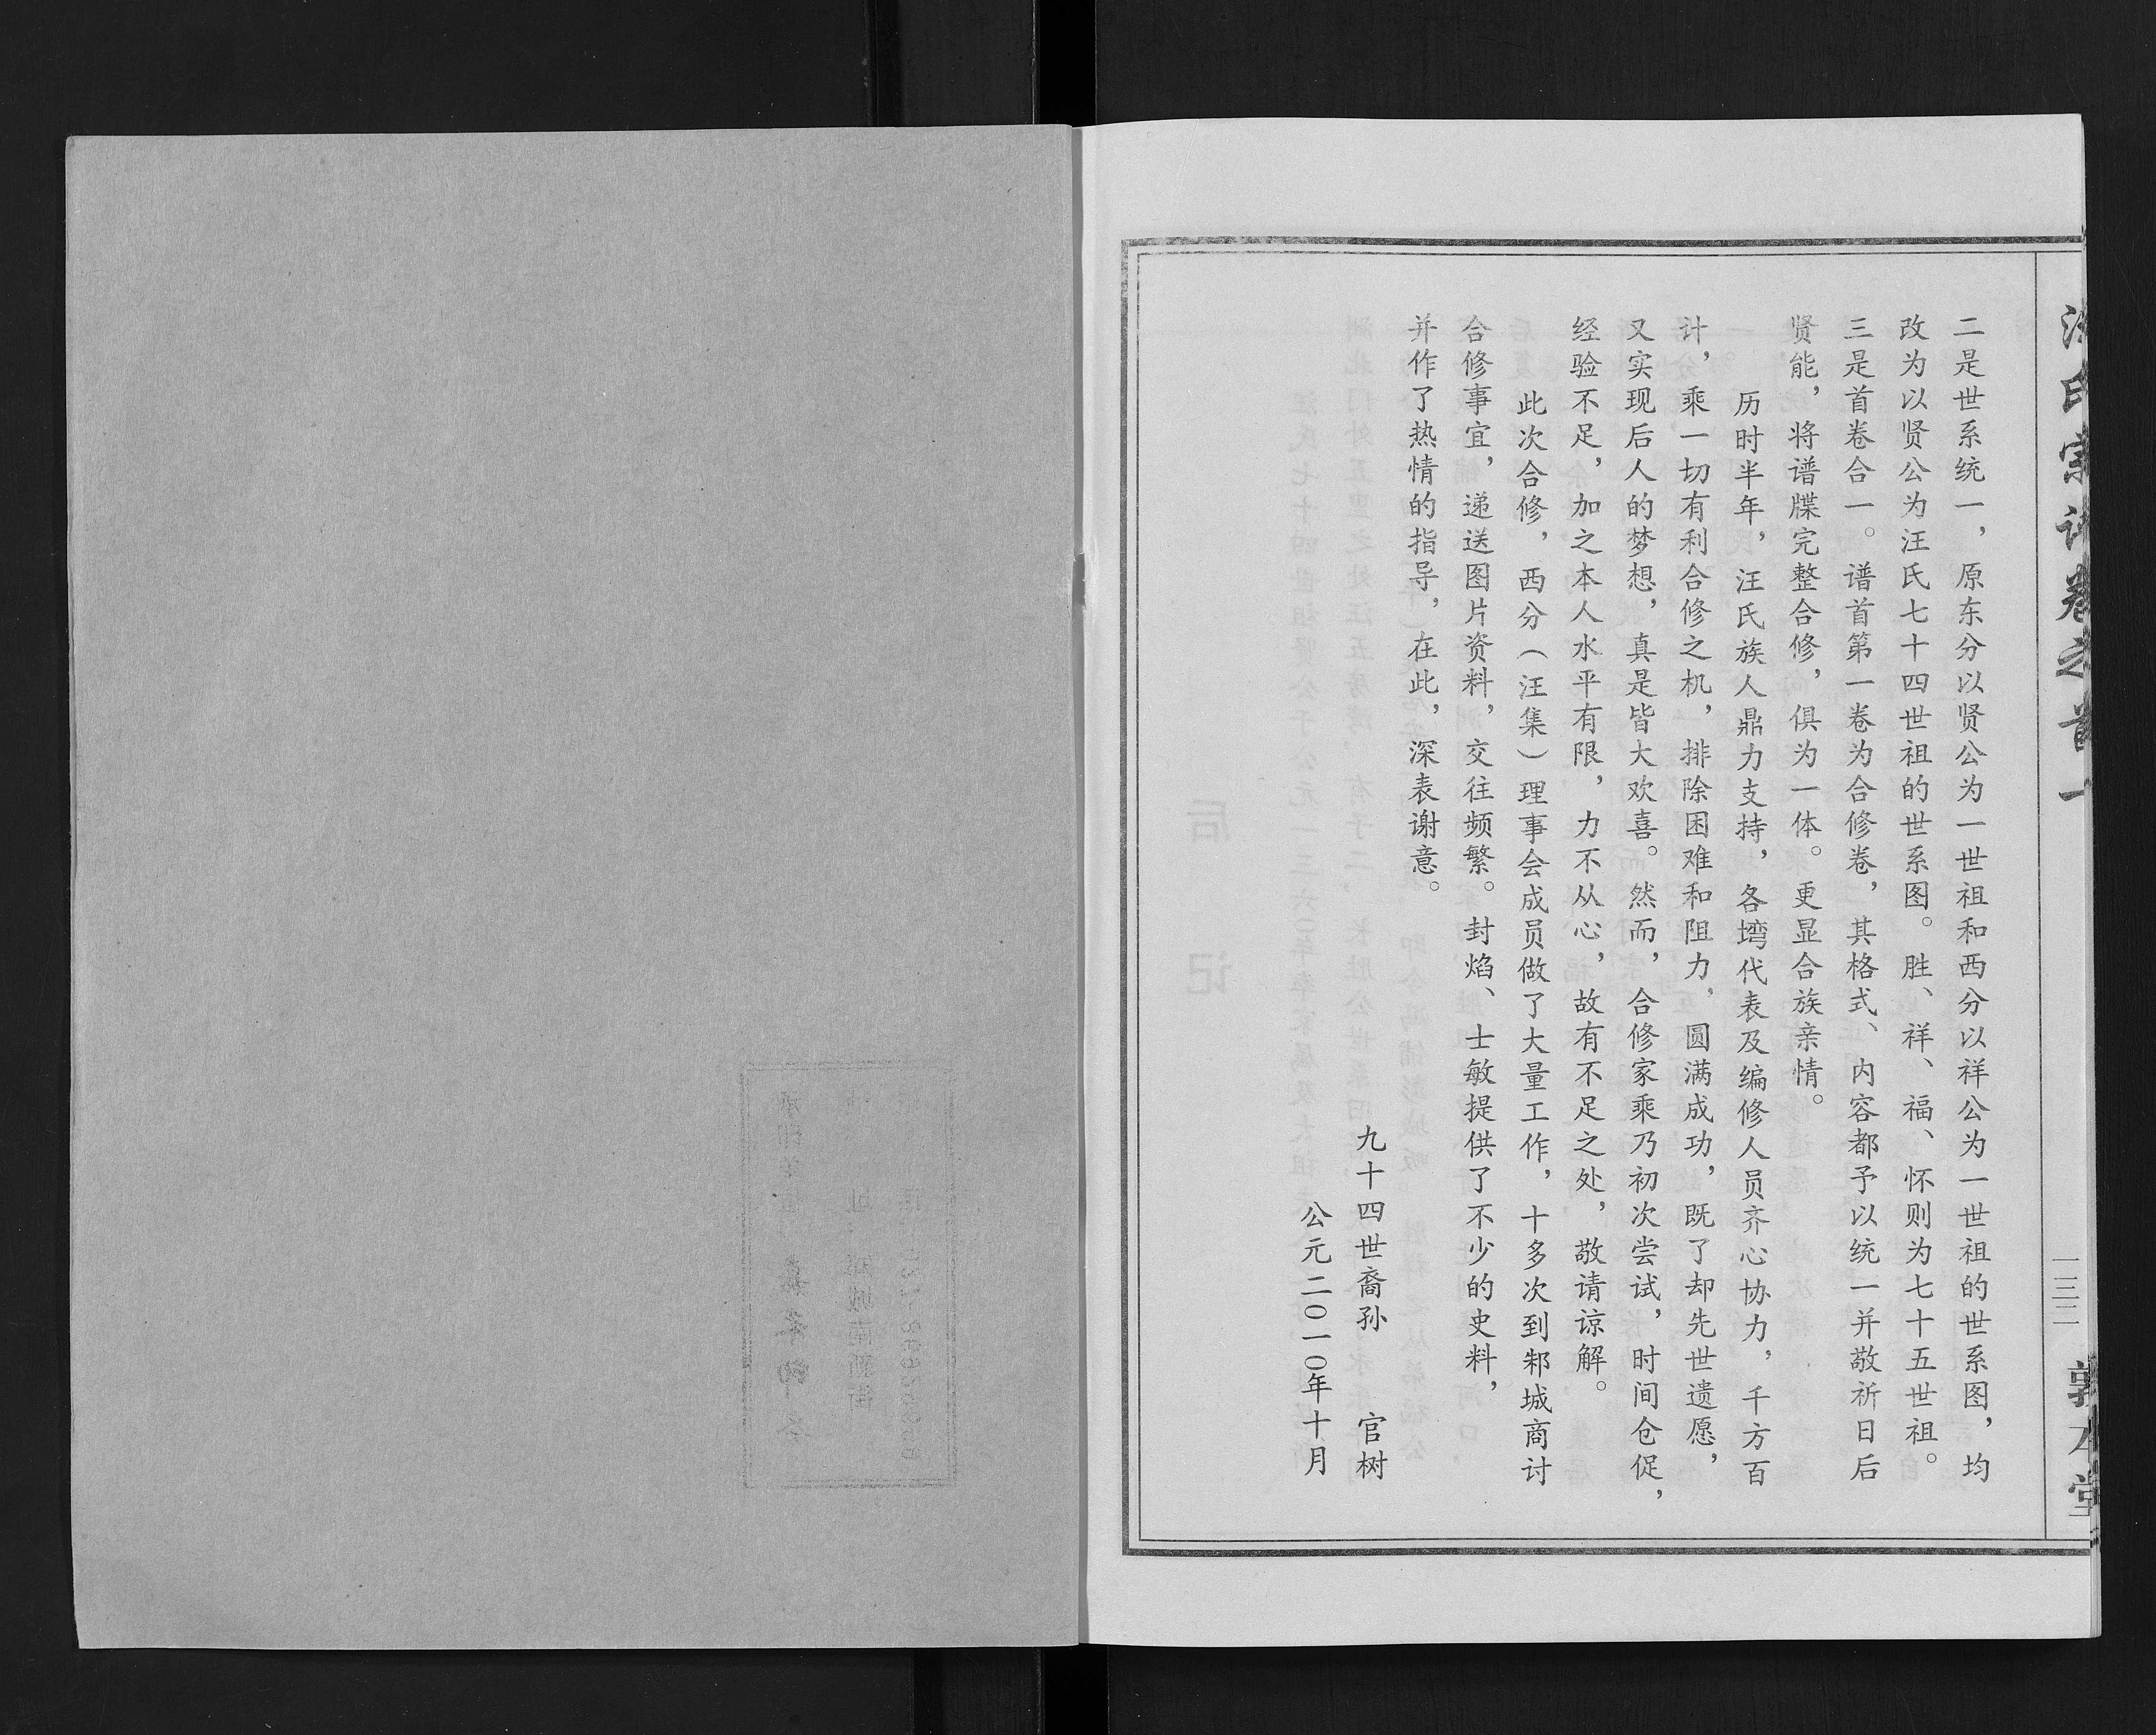 汪氏宗谱卷之首一
一三二
敦本堂
二是世系统一，原东分以贤公为一世祖和西分以祥公为一世祖的世系图，均
改为以贤公为汪氏七十四世祖的世系图。胜、祥、福、怀则为七十五世祖。
三是首卷合一。谱首第一卷为合修卷，其格式、内容都予以统一并敬祈日后
贤能，将谱牒完整合修，俱为一体。更显合族亲情。
历时半年，汪氏族人鼎力支持，各塆代表及编修人员齐心协力，千方百
计，乘一切有利合修之机，排除困难和阻力，圆满成功，既了却先世遗愿，
又实现后人的梦想，真是皆大欢喜。然而，合修家乘乃初次尝试，时间仓促，
经验不足，加之本人水平有限，力不从心，故有不足之处，敬请谅解。
此次合修，西分（汪集）理事会成员做了大量工作，十多次到邾城商讨
合修事宜，递送图片资料，交往频繁。封焰、士敏提供了不少的史料，
并作了热情的指导，在此，深表谢意。
九十四世裔孙 官树
公元二〇一〇年十月